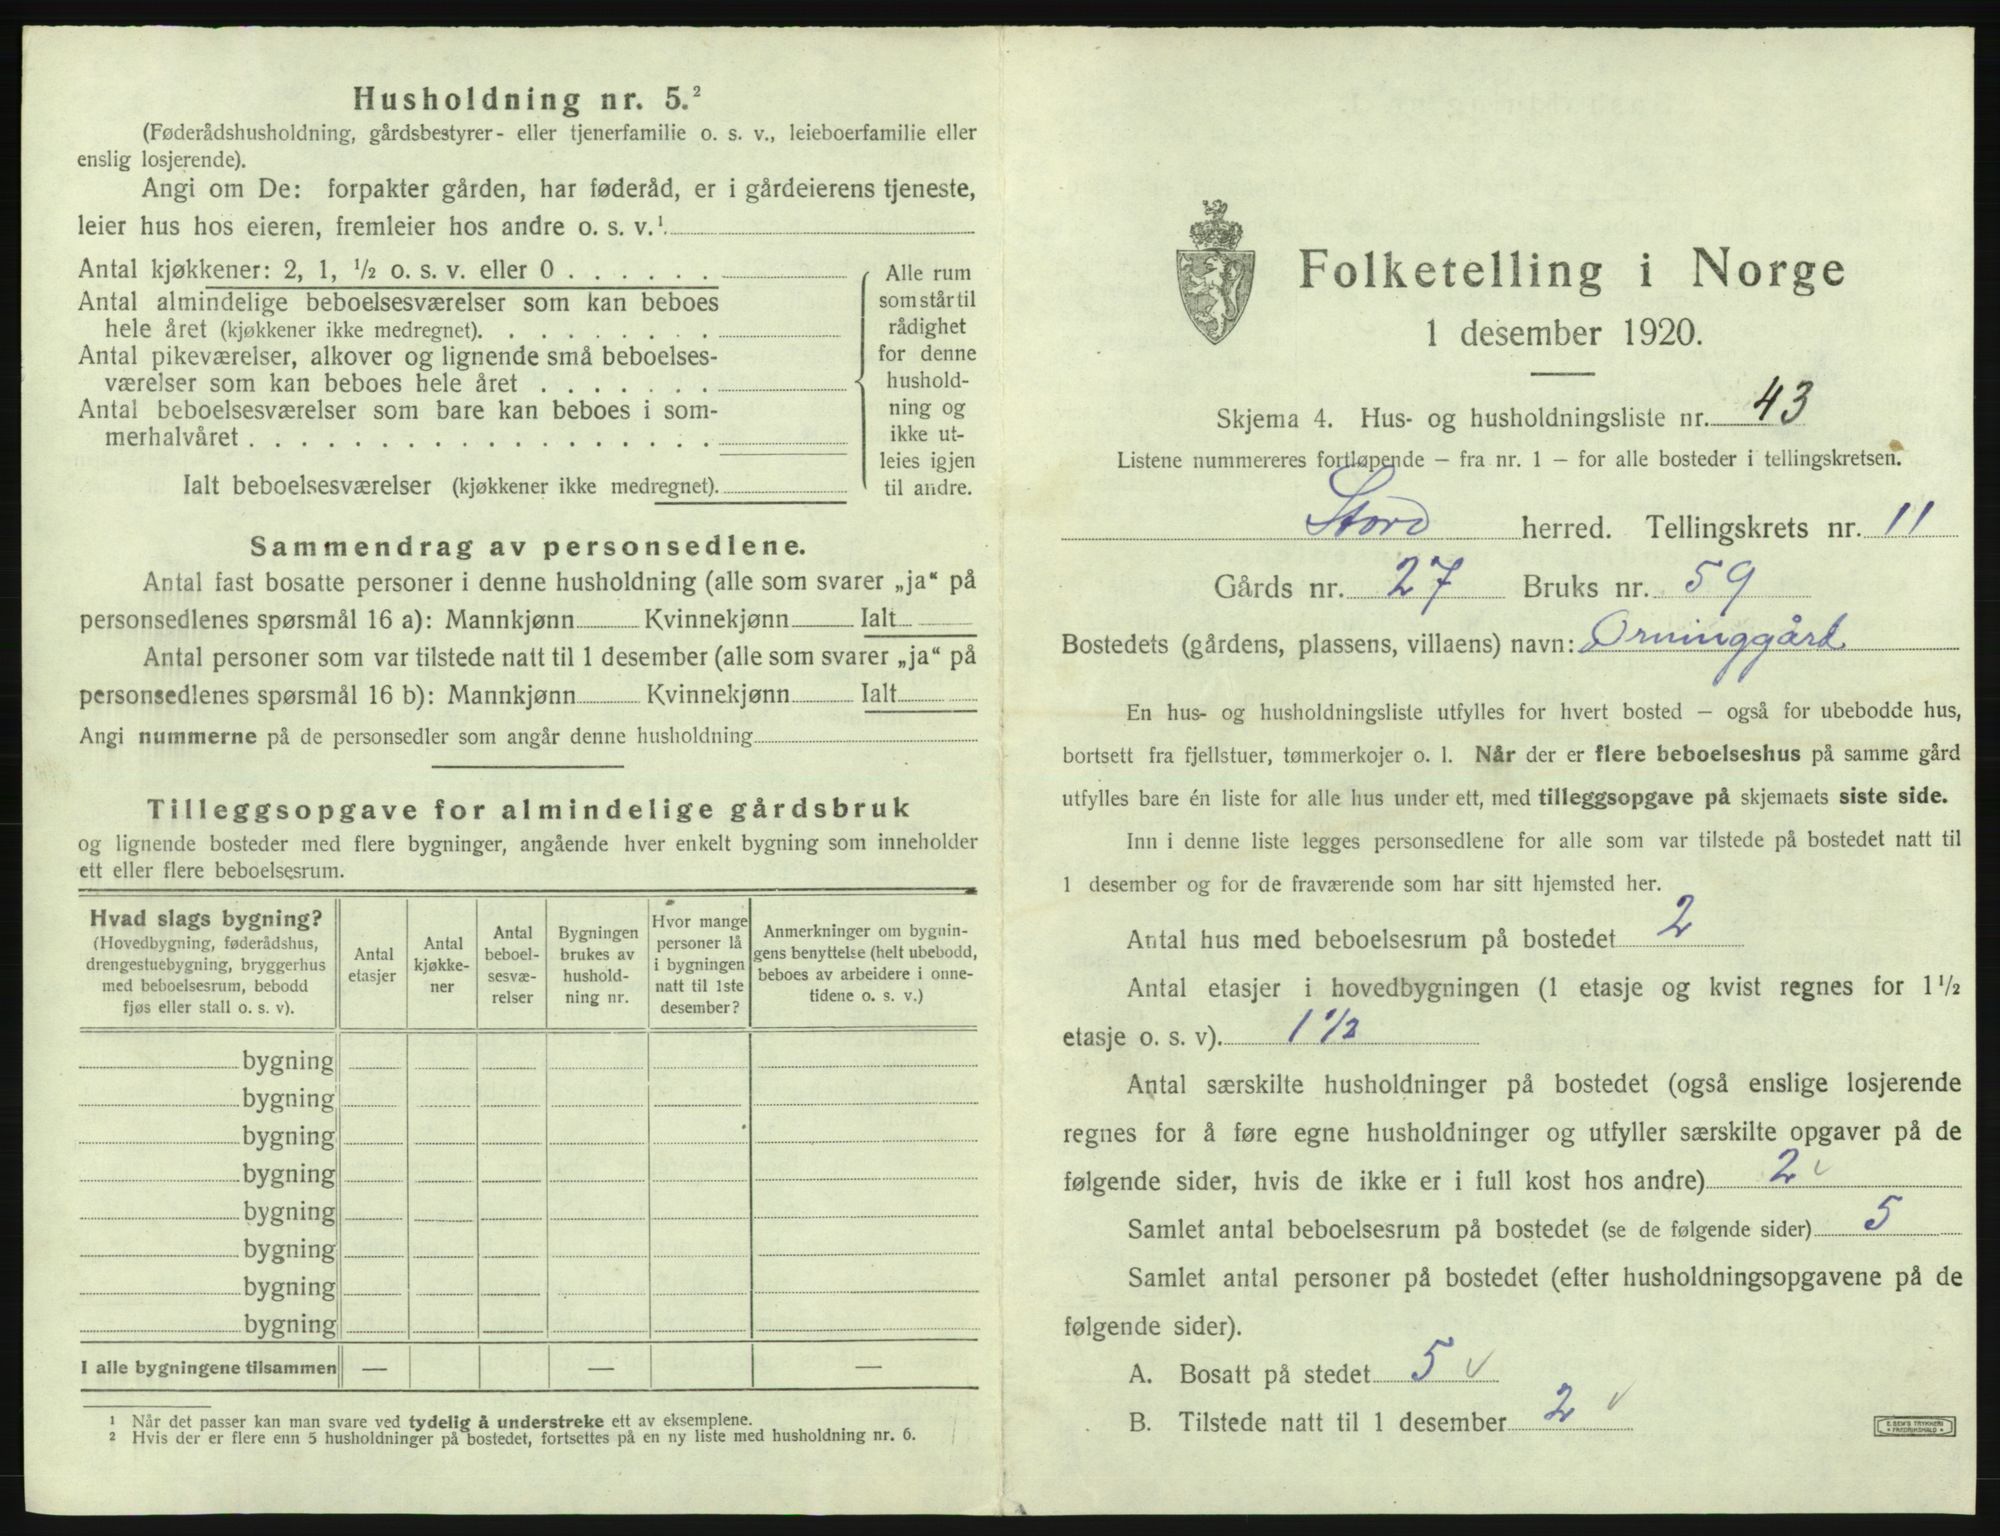 Husholdning nr. 5.²
(Føderådshusholdning, gårdsbestyrer- eller tjenerfamilie o. s. v., leieboerfamilie eller
enslig losjerende).
Angi om De: forpakter gården, har føderåd, er i gårdeierens tjeneste,
leier hus hos eieren, fremleier hos andre o. s. v.¹
Antal kjøkkener: 2, 1, ½ o. s. v. eller 0 . . . . . .
Antal almindelige beboelsesværelser som kan beboes
hele året (kjøkkener ikke medregnet). . . . . . . . .
Antal pikeværelser, alkover og lignende små beboelses-
værelser som kan beboes hele året . . . . . . .
Antal beboelsesværelser som bare kan beboes i som-
merhalvåret . . . . . . . . . . . . . . . . . .
Ialt beboelsesværelser (kjøkkener ikke medregnet).
Alle rum
som står til
rådighet
for denne
hushold-
ning og
ikke ut-
leies igjen
til andre.
Sammendrag av personsedlene.
Antal fast bosatte personer i denne husholdning (alle som svarer „ja“ på
personsedlenes spørsmål 16 a): Mannkjønn Kvinnekjønn Ialt
Antal personer som var tilstede natt til 1 desember (alle som svarer „ja“ på
personsedlenes spørsmål 16 b): Mannkjønn Kvinnekjønn Ialt
Angi nummerne på de personsedler som angår denne husholdning
Tilleggsopgave for almindelige gårdsbruk
og lignende bosteder med flere bygninger, angående hver enkelt bygning som inneholder
ett eller flere beboelsesrum.
Hvad slags bygning?
(Hovedbygning, føderådshus,
drengestuebygning, bryggerhus
med beboelsesrum, bebodd
fjøs eller stall o. s. v).
Antal
etasjer
Antal
kjøkke-
ner
Antal
beboel-
sesvæ-
relser
Bygningen
brukes av
hushold-
ning nr.
Hvor mange
personer lå
i bygningen
natt til 1ste
desember?
Anmerkninger om bygnin-
gens benyttelse (helt ubebodd,
beboes av arbeidere i onne-
tidene o. s. v.)
bygning
bygning
bygning
bygning
bygning
bygning
bygning
bygning
I alle bygningene tilsammen — — —
¹ Når det passer kan man svare ved tydelig å understreke ett av eksemplene.
² Hvis der er flere enn 5 husholdninger på bostedet, fortsettes på en ny liste med husholdning nr. 6.
Folketelling i Norge
1 desember 1920.
Skjema 4. Hus- og husholdningsliste nr. 43
Listene nummereres fortløpende – fra nr. 1 – for alle bosteder i tellingskretsen.
Stord herred. Tellingskrets nr. 11
Gårds nr. 27 Bruks nr. 59
Bostedets (gårdens, plassens, villaens) navn: Orninggård
En hus- og husholdningsliste utfylles for hvert bosted – også for ubebodde hus,
bortsett fra fjellstuer, tømmerkojer o. l. Når der er flere beboelseshus på samme gård
utfylles bare én liste for alle hus under ett, med tilleggsopgave på skjemaets siste side.
Inn i denne liste legges personsedlene for alle som var tilstede på bostedet natt til
1 desember og for de fraværende som har sitt hjemsted her.
Antal hus med beboelsesrum på bostedet 2
Antal etasjer i hovedbygningen (1 etasje og kvist regnes for 1½
etasje o. s. v). 1 ½
Antal særskilte husholdninger på bostedet (også enslige losjerende
regnes for å føre egne husholdninger og utfyller særskilte opgaver på de
følgende sider, hvis de ikke er i full kost hos andre) 2 ✓
Samlet antal beboelsesrum på bostedet (se de følgende sider) 5
Samlet antal personer på bostedet (efter husholdningsopgavene på de
følgende sider).
A. Bosatt på stedet 5 ✓
B. Tilstede natt til 1 desember 2 ✓
E. SEM'S TRYKKERI
FREDRIKSHALD